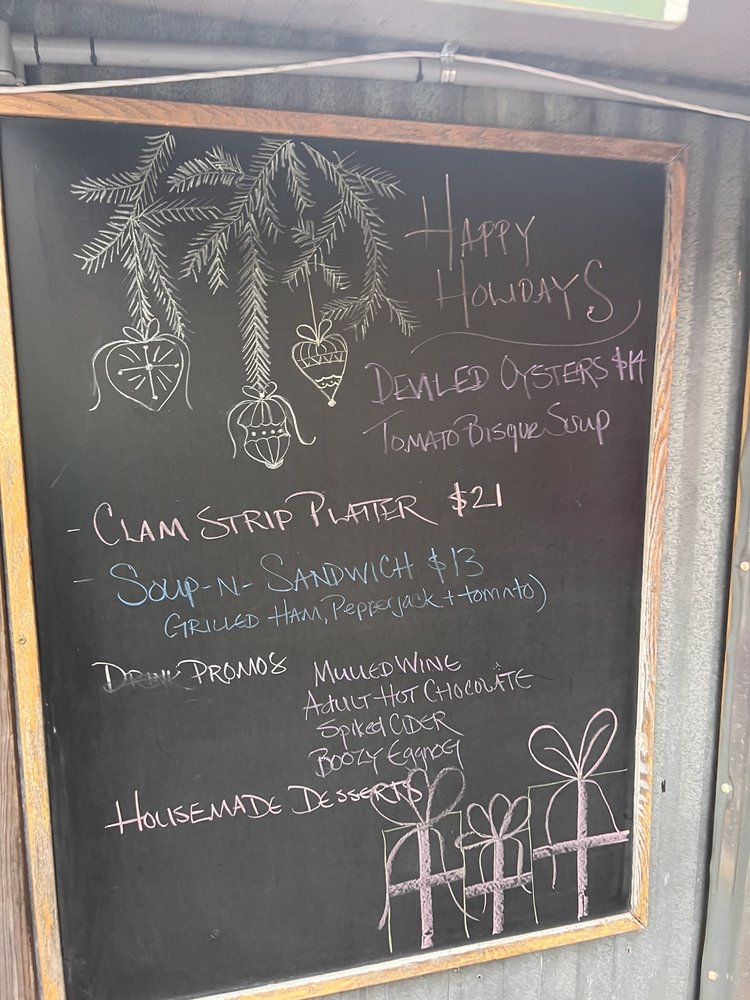 HAPPY
HOLIDAYS
DEVILED OYSTERS $14
TOMATO BISQUE SOUP
- CLAM STRIP PLATTER $21
- SOUP-N-SANDWICH $13
GRILLED HAM, Pepperjack + tomato)
DRINK PROMOS MULLED WINE
ADULT HOT CHOCOLATE
Spiked CIDER
BOOZY Eggnog
HOUSEMADE DESSERTS